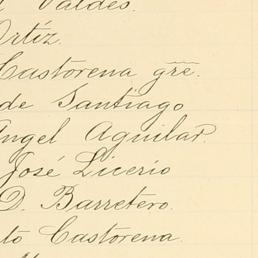 Valdés.
Ortíz.
Castorena gre.
de Santiago
Angel Aguilar.
José Licerio
D. Barretero.
to Castorena.